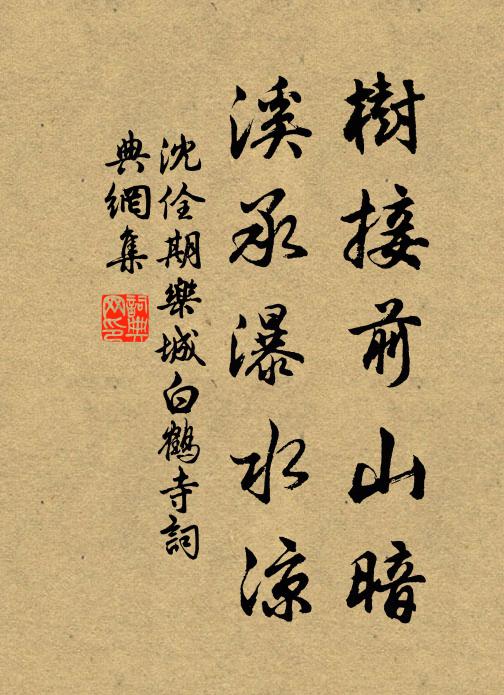 樹接前山暗
溪承瀑水涼
沈佺期樂城白鶴寺詞
典網集
詞典
网印